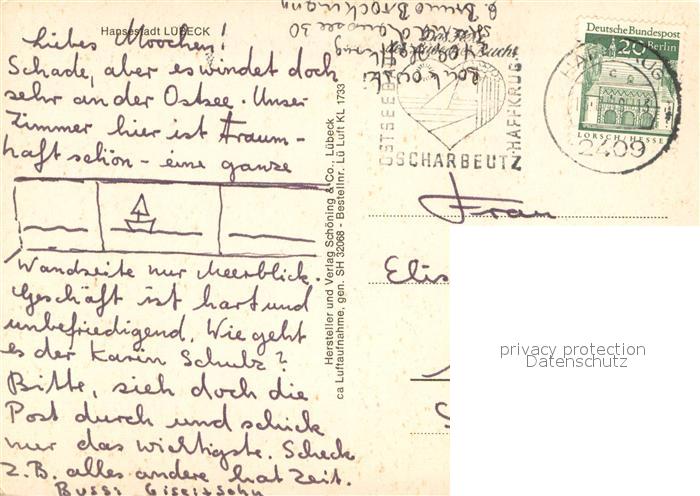 Hansestadt LÜBECK
Liebes Moochen!
Schade, aber es windet doch
sehr an der Ostsee. Unser
Zimmer hier ist traum-
haft schön - eine ganze
Wandseite nur Meerblick.
Geschäft ist hart und
unbefriedigend. Wie geht
es der Karin Schulz?
Bitte, sieh doch die
Post durch und schick
nur das wichtigste. Scheck
z.B. alles andere hat Zeit.
Bussi
Hersteller und Verlag Schöning & Co., Lübeck
ca Luftaufnahme, gen. SH 32068 - Bestellnr. Lü Luft KL 1733
b. Bruno Brockmann
30
OSTSEE
SCHARBEUTZ
HAFFKRUG
2409
Deutsche Bundespost
20 Berlin
LORSCH/HESSEN
Frau
Elis
privacy protection
Datenschutz